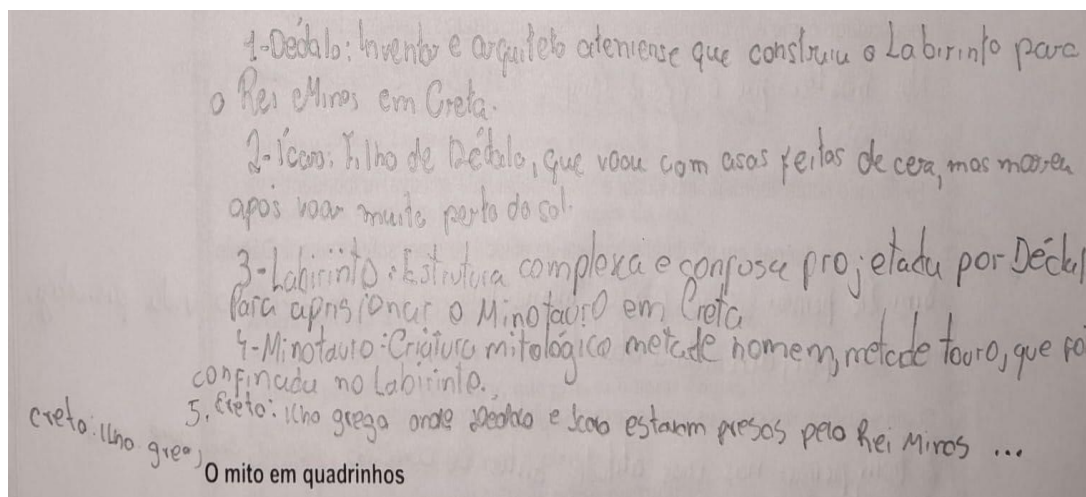 1-Dédalo: Inventor e arquiteto ateniense que construiu o Labirinto para
o Rei Minos em Creta.
2-Ícaro: Filho de Dédalo, que voou com asas feitas de cera, mas morreu
após voar muito perto do sol.
3-Labirinto: Estrutura complexa e confusa projetada por Dédal
Para aprisionar o Minotauro em Creta
4-Minotauro: Criatura mitológica metade homem, metade touro, que fo
confinada no Labirinto.
5. Creta: Ilha grega onde Dédalo e Ícaro estavam presos pelo Rei Minos ...
creta: Ilha greg
O mito em quadrinhos